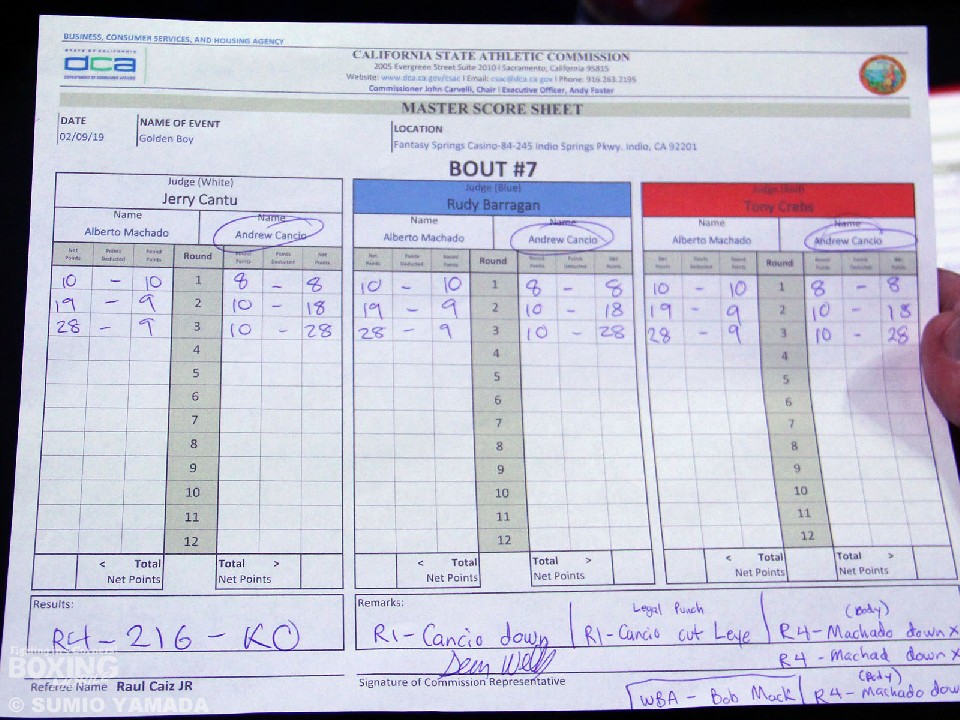 BUSINESS, CONSUMER SERVICES, AND HOUSING AGENCY
STATE OF CALIFORNIA
dca
DEPARTMENT OF CONSUMER AFFAIRS
CALIFORNIA STATE ATHLETIC COMMISSION
2005 Evergreen Street Suite 2010 | Sacramento, California 95815
Website: www.dca.ca.gov/csac | Email: csac@dca.ca.gov | Phone: 916.263.2195
Commissioner John Carvelli, Chair | Executive Officer, Andy Foster
MASTER SCORE SHEET
DATE NAME OF EVENT LOCATION
02/09/19 Golden Boy Fantasy Springs Casino-84-245 Indio Springs Pkwy. Indio, CA 92201
BOUT #7
Judge (White) Judge (Blue) Judge (Red)
Jerry Cantu Rudy Barragan Tony Crebs
Name Name Name Name Name Name
Alberto Machado Andrew Cancio Alberto Machado Andrew Cancio Alberto Machado Andrew Cancio
Net Points Points Deducted Round Points Round Round Points Points Deducted Net Points Net Points Points Deducted Round Points Round Round Points Points Deducted Net Points Net Points Points Deducted Round Points Round Round Points Points Deducted Net Points
10 - 10 1 8 - 8 10 - 10 1 8 - 8 10 - 10 1 8 - 8
19 - 9 2 10 - 18 19 - 9 2 10 - 18 19 - 9 2 10 - 18
28 - 9 3 10 - 28 28 - 9 3 10 - 28 28 - 9 3 10 - 28
4 4 4
5 5 5
6 6 6
7 7 7
8 8 8
9 9 9
10 10 10
11 11 11
12 12 12
< Total Total > < Total Total > < Total Total >
Net Points Net Points Net Points Net Points Net Points Net Points
Results: Remarks:
R4 - 216 - KO
R1 - Cancio down
Legal Punch
R1 - Cancio cut Leye
(Body)
R4 - Machado down x
R4 - Machad down x
(Body)
R4 - Machado dow
Signature of Commission Representative
WBA - Bob Mack
Referee Name Raul Caiz JR
BOXING
© SUMIO YAMADA